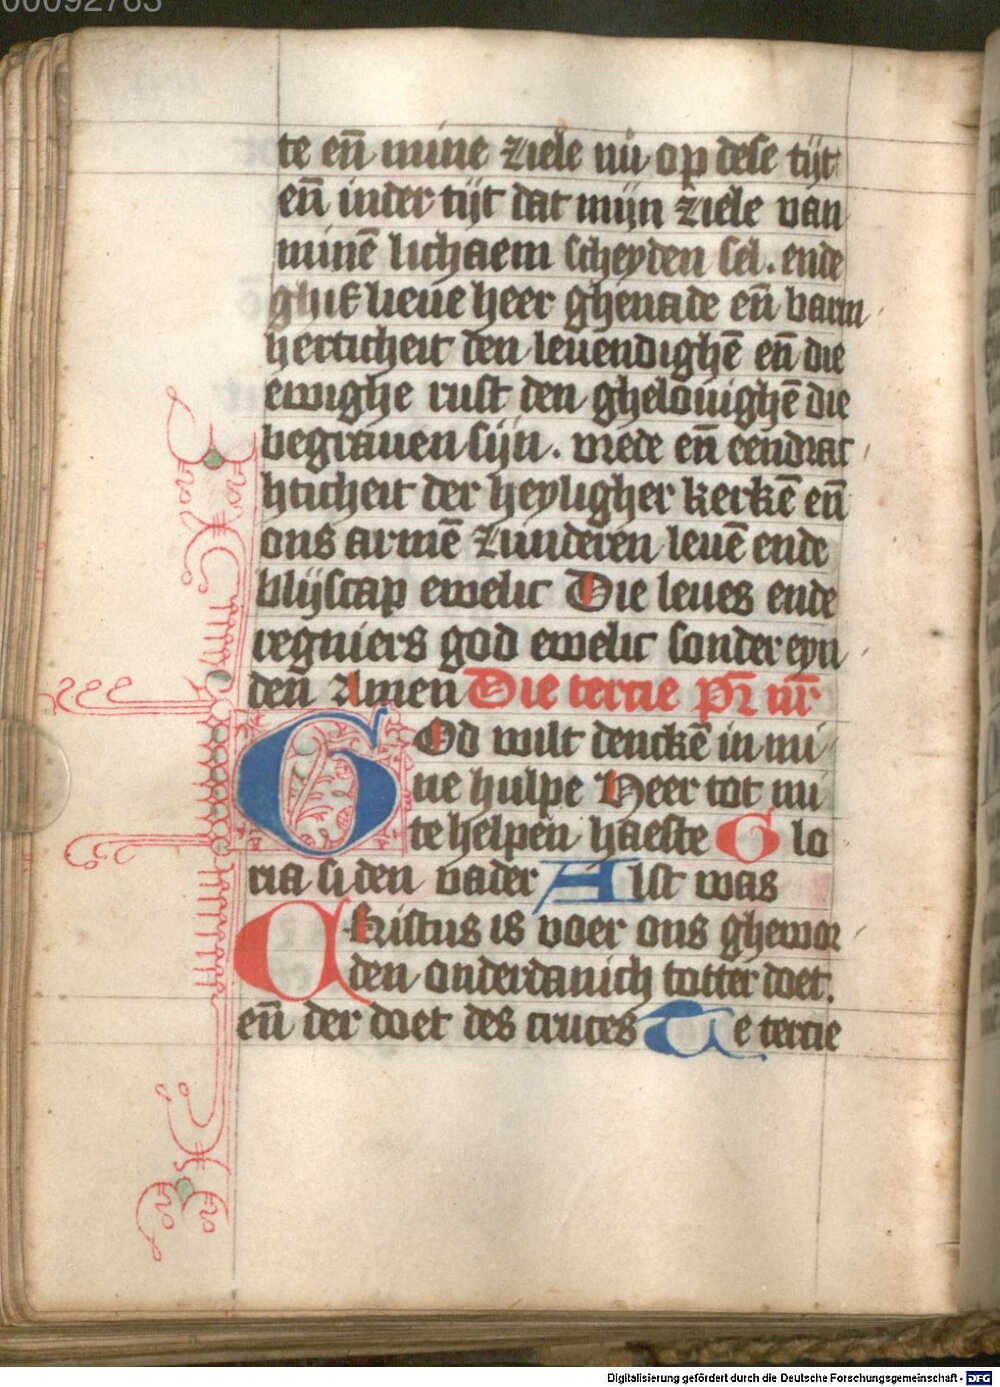 00092763
te en̄ mine ziele nu op dese tijt
en̄ inder tijt dat mijn ziele van
minē lichaem scheyden sel. ende
ghif lieue heer ghenade en̄ barm
herticheit den leuendighē en̄ die
ewighe rust den ghelouighē die
begrauen sijn. vrede en̄ eendrac
hticheit der heyligher kerkē en̄
ons armē zunderen leuē ende
blijscap ewelic Die leues ende
regniers god ewelic sonder eyn
den Amen Die tercie pr̄ nr̄
GOd wilt denckē in mi
ne hulpe Heer tot mi
te helpen haeste Glo
ria si den vader Alst was
Christus is voer ons ghewor
den onderdanich totter doet.
en̄ der doet des cruces Te tercie
Digitalisierung gefördert durch die Deutsche Forschungsgemeinschaft - DFG